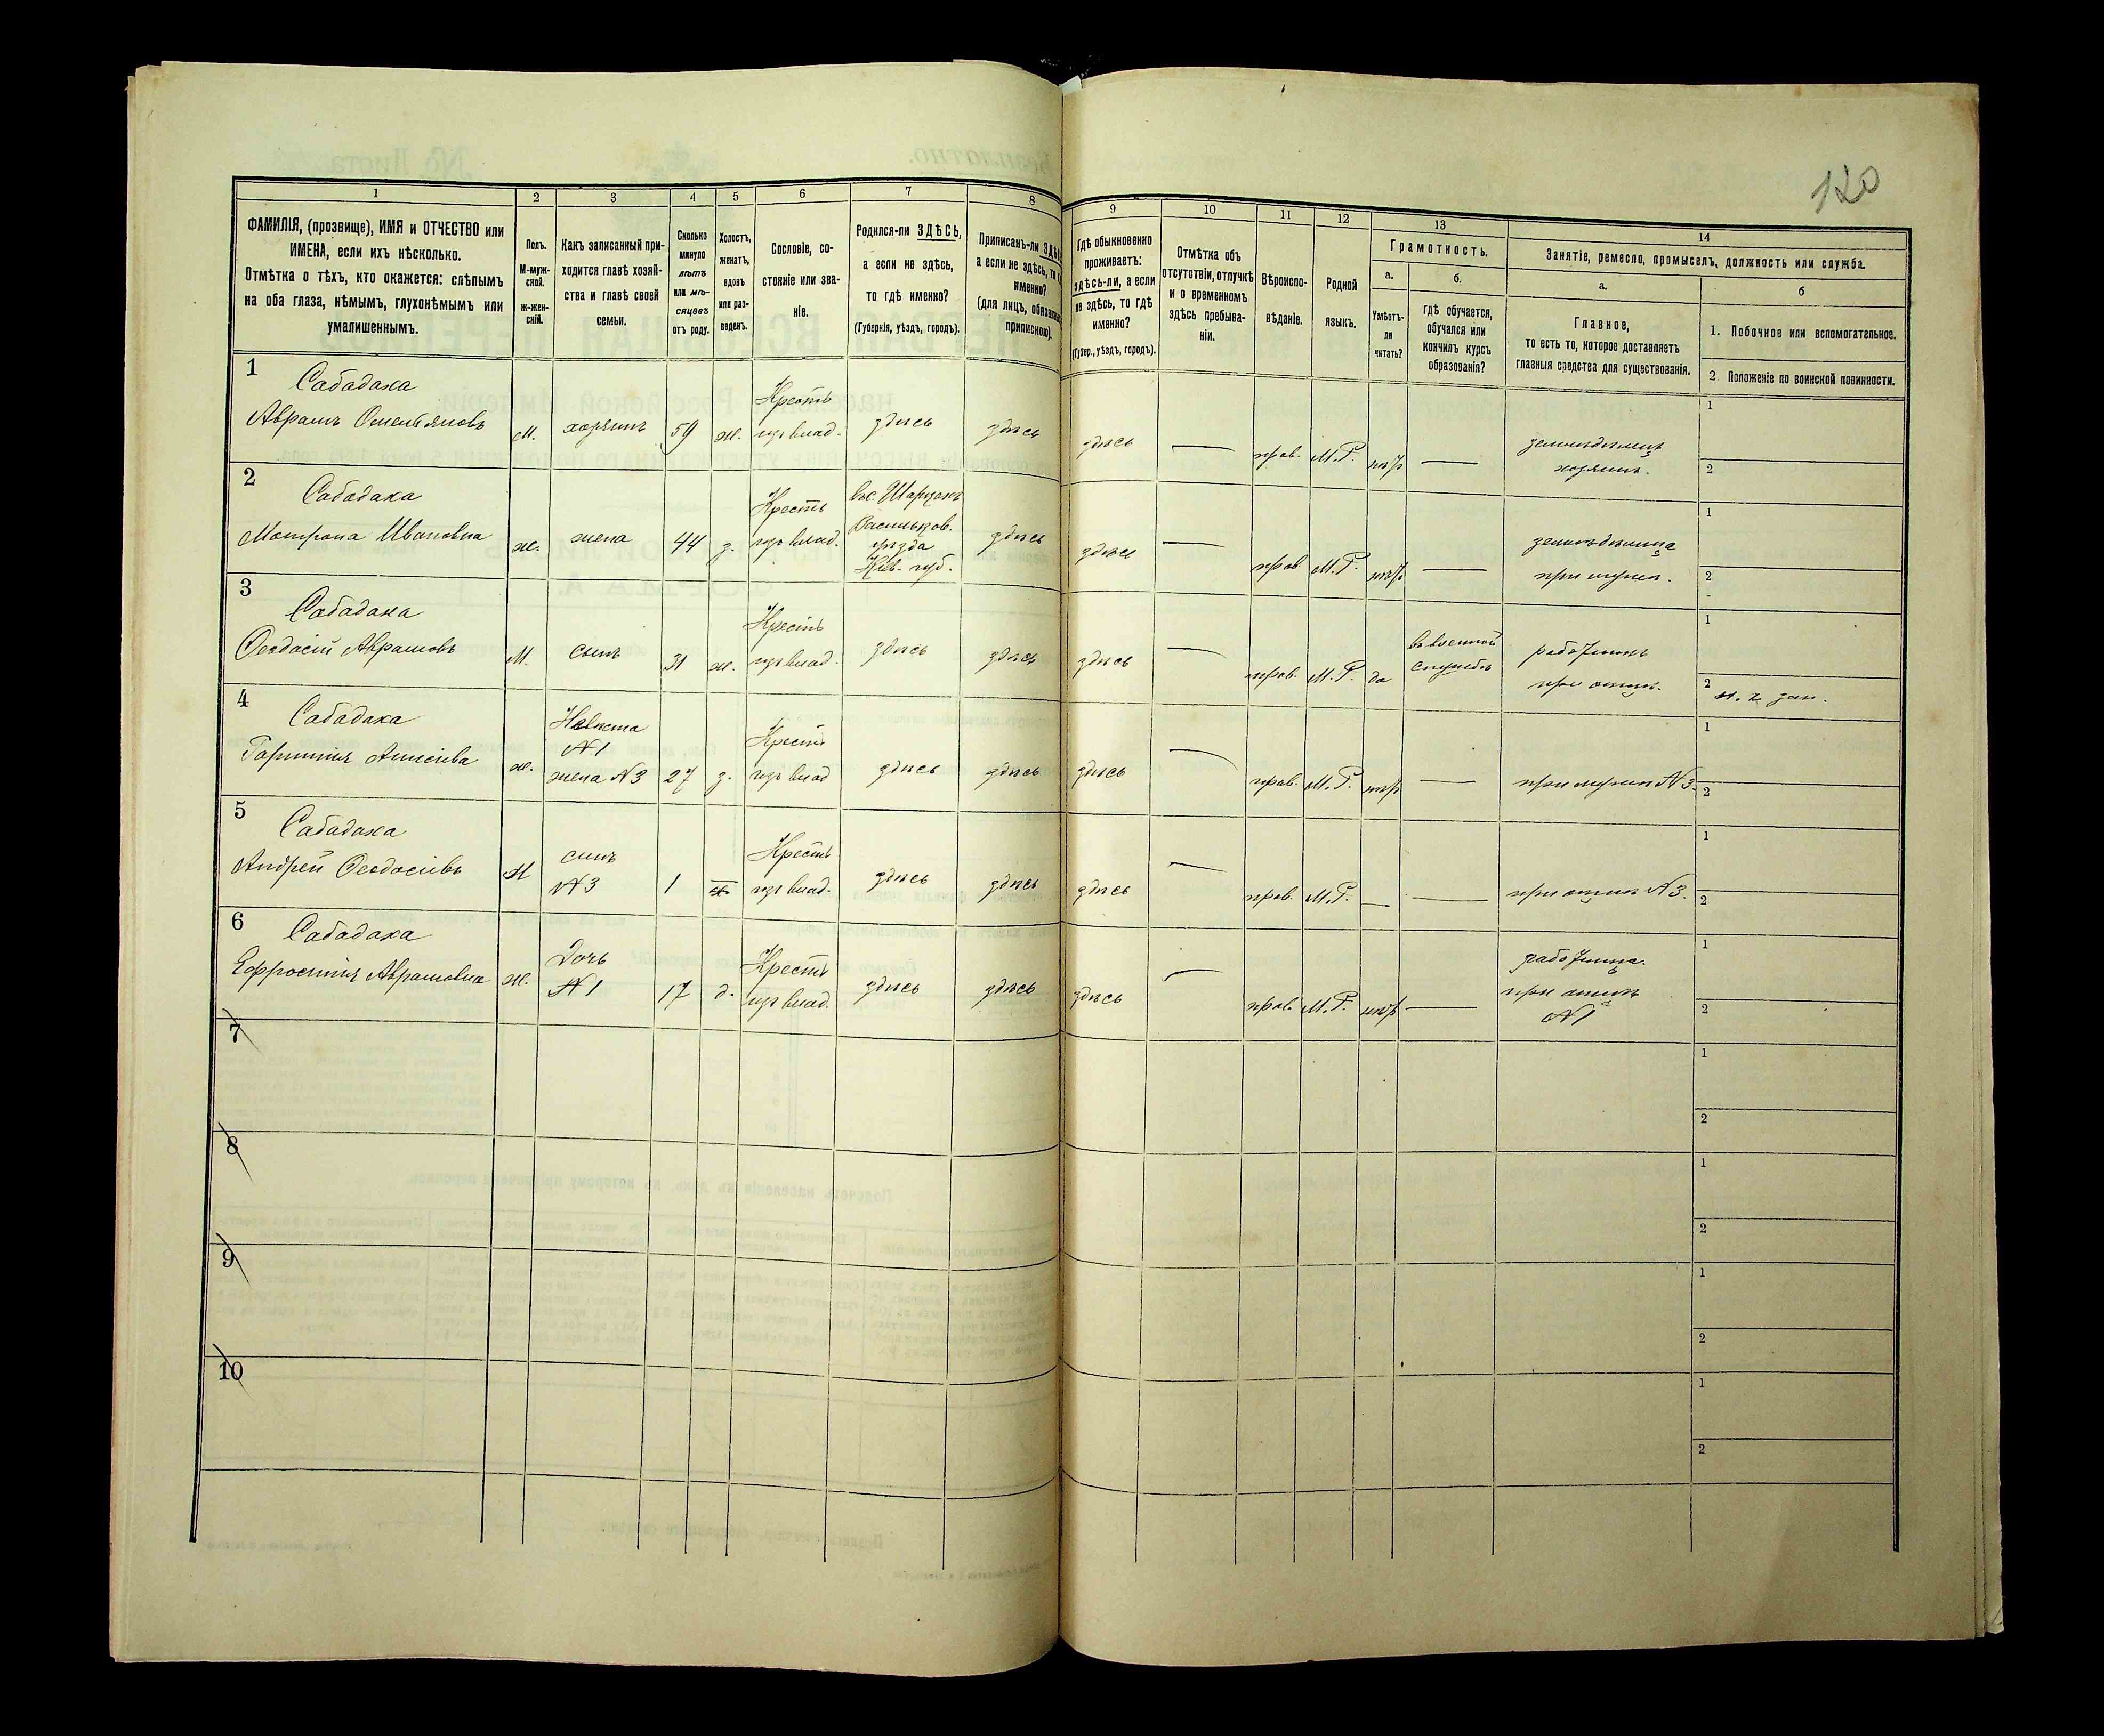 120
1
2
3
4
5
6
7
8
9
10
11
12
13
14
ФАМИЛІЯ, (прозвище), ИМЯ и ОТЧЕСТВО или
ИМЕНА, если ихъ нѣсколько.
Отмѣтка о тѣхъ, кто окажется: слѣпымъ
на оба глаза, нѣмымъ, глухонѣмымъ или
умалишеннымъ.
Полъ.
М-муж-
ской.
ж-жен-
скій.
Какъ записанный при-
ходится главѣ хозяй-
ства и главѣ своей
семьи.
Сколько
минуло
лѣтъ
или мѣ-
сяцевъ
отъ роду.
Холостъ,
женатъ,
вдовъ
или раз-
веденъ.
Сословіе, со-
стояніе или зва-
ніе.
Родился-ли ЗДѢСЬ,
а если не здѣсь,
то гдѣ именно?
(Губернія, уѣздъ, городъ).
Приписанъ-ли
а если не здѣсь,
именно?
(для лицъ,
припискою).
Гдѣ обыкновенно
проживаетъ:
здѣсь-ли, а если
не здѣсь, то гдѣ
именно?
(Губер., уѣздъ, городъ).
Отмѣтка объ
отсутствіи, отлучкѣ
и о временномъ
здѣсь пребыва-
ніи.
Вѣроиспо-
вѣданіе.
Родной
языкъ.
Грамотность.
а.
Умѣетъ-
ли
читать?
б.
Гдѣ обучается,
обучался или
кончилъ курсъ
образованія?
Занятіе, ремесло, промыселъ, должность или служба.
а.
Главное,
то есть то, которое доставляетъ
главныя средства для существованія.
б
1. Побочное или вспомогательное.
2. Положеніе по воинской повинности.
1
Сабадаха
Аврамъ Омельяновъ
м.
хозяинъ
59
ж.
Крестъ
изъ влад.
здѣсь
здѣсь
здѣсь
—
прав.
М.Р.
—
земледѣлецъ
хозяинъ.
1
2
2
Сабадаха
Мотрона Ивановна
ж.
жена
44
з.
Крестъ
изъ влад.
Васильков.
уѣзда
Кіев. губ.
здѣсь
здѣсь
—
прав
М.Р.
—
при мужѣ.
1
2
3
Сабадаха
Ѳеодосій Аврамовъ
М.
сынъ
31
ж.
Крестъ
изъ влад.
здѣсь
здѣсь
здѣсь
—
прав.
М.Р.
да
въ военной
службѣ
работникъ
при отцѣ.
1
2
4
Сабадаха
ж.
Невѣста
№1
жена №3
27
з.
Крестъ
изъ влад
здѣсь
здѣсь
здѣсь
—
прав.
М.Р.
—
при мужѣ №3.
1
2
5
Сабадаха
Андрей Ѳеодосіевъ
М
сынъ
№3
1
Крестъ
изъ влад.
здѣсь
здѣсь
здѣсь
—
прав.
М.Р.
—
—
при отцѣ №3.
1
2
6
Сабадаха
Ефросинія Аврамовна
ж.
Дочь
№1
17
д.
Крестъ
изъ влад.
здѣсь
здѣсь
здѣсь
—
прав.
М.Р.
—
работница.
при отцѣ
№1
1
2
7
1
2
8
1
2
9
1
2
10
1
2